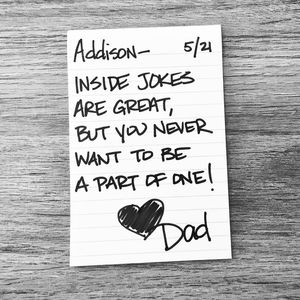 Addison— 5/21
INSIDE JOKES
ARE GREAT,
BUT YOU NEVER
WANT TO BE
A PART OF ONE!
Dad